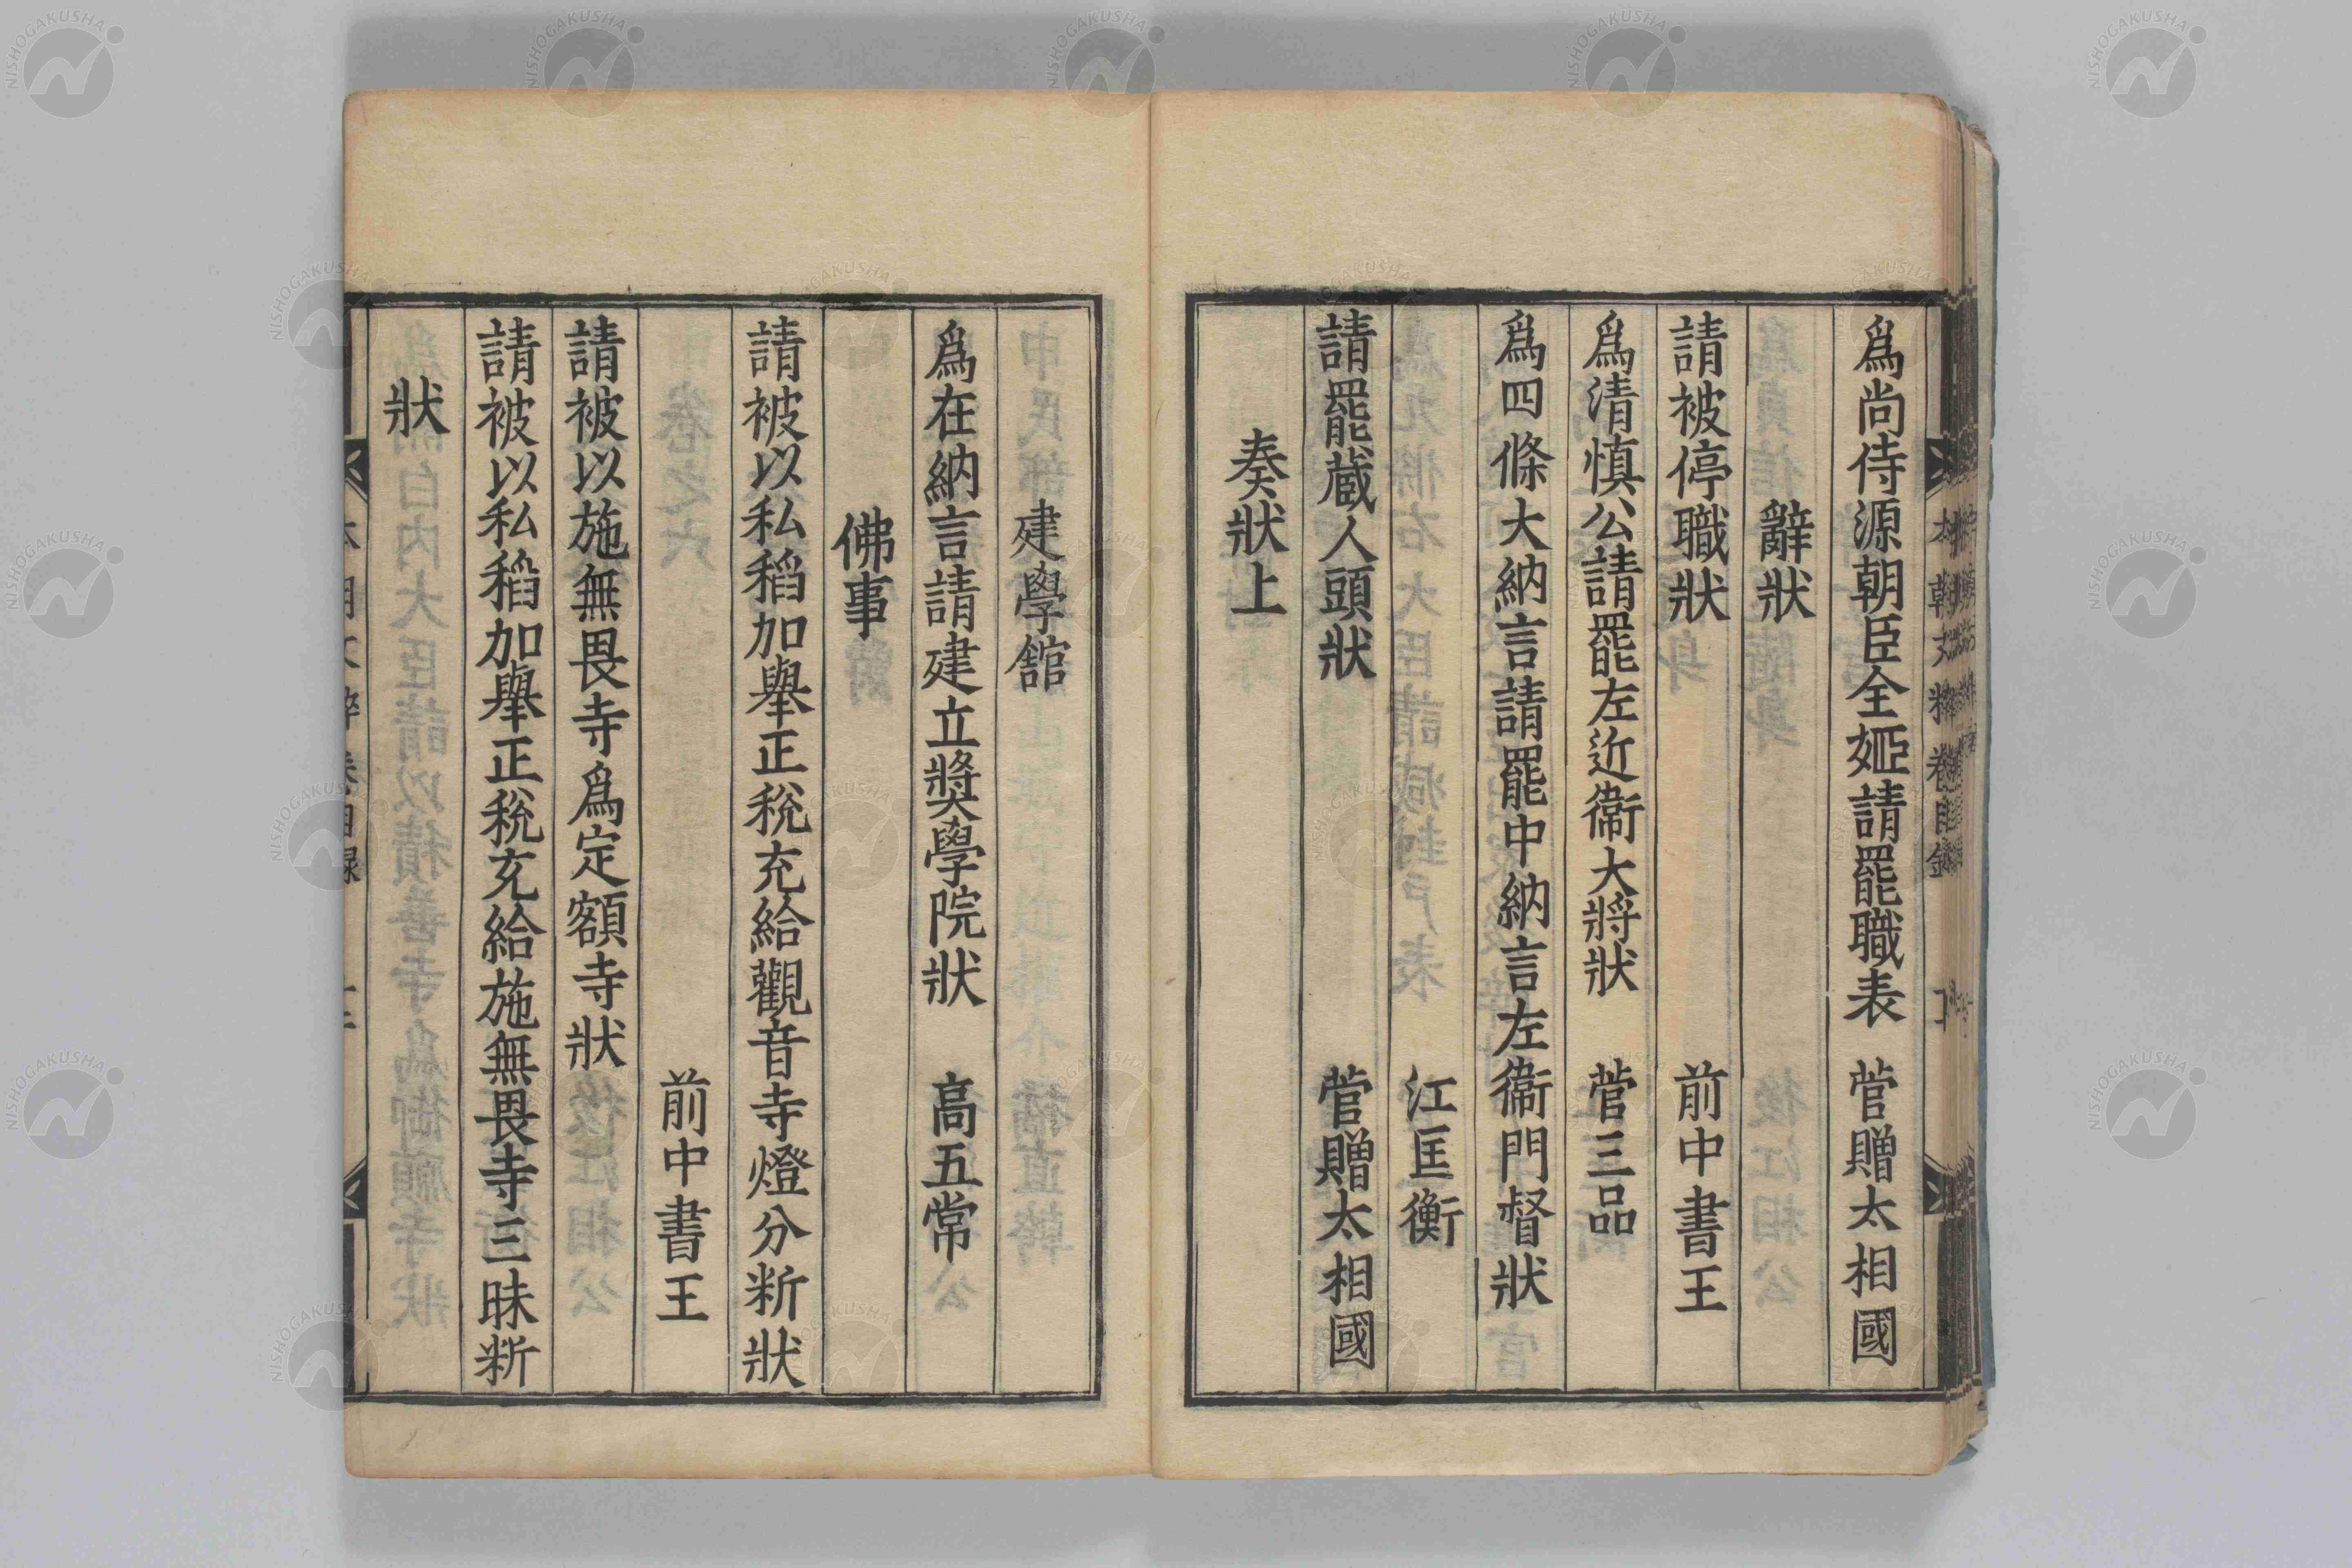 爲尚侍源朝臣全姬請罷職表　菅贈太相國
辭狀
請被停職狀　前中書王
爲清愼公請罷左近衞大將狀　菅三品
爲四條大納言請罷中納言左衞門督狀
江匡衡
請罷藏人頭狀　菅贈太相國
奏狀上
建學舘
爲在納言請建立奬學院狀　高五常
佛事
請被以私稻加擧正稅充給觀音寺燈分新狀
前中書王
請被以施無畏寺爲定額寺狀
請被以私稻加擧正稅充給施無畏寺三昧新
狀
本朝文粹卷目錄
NISHOGAKUSHA